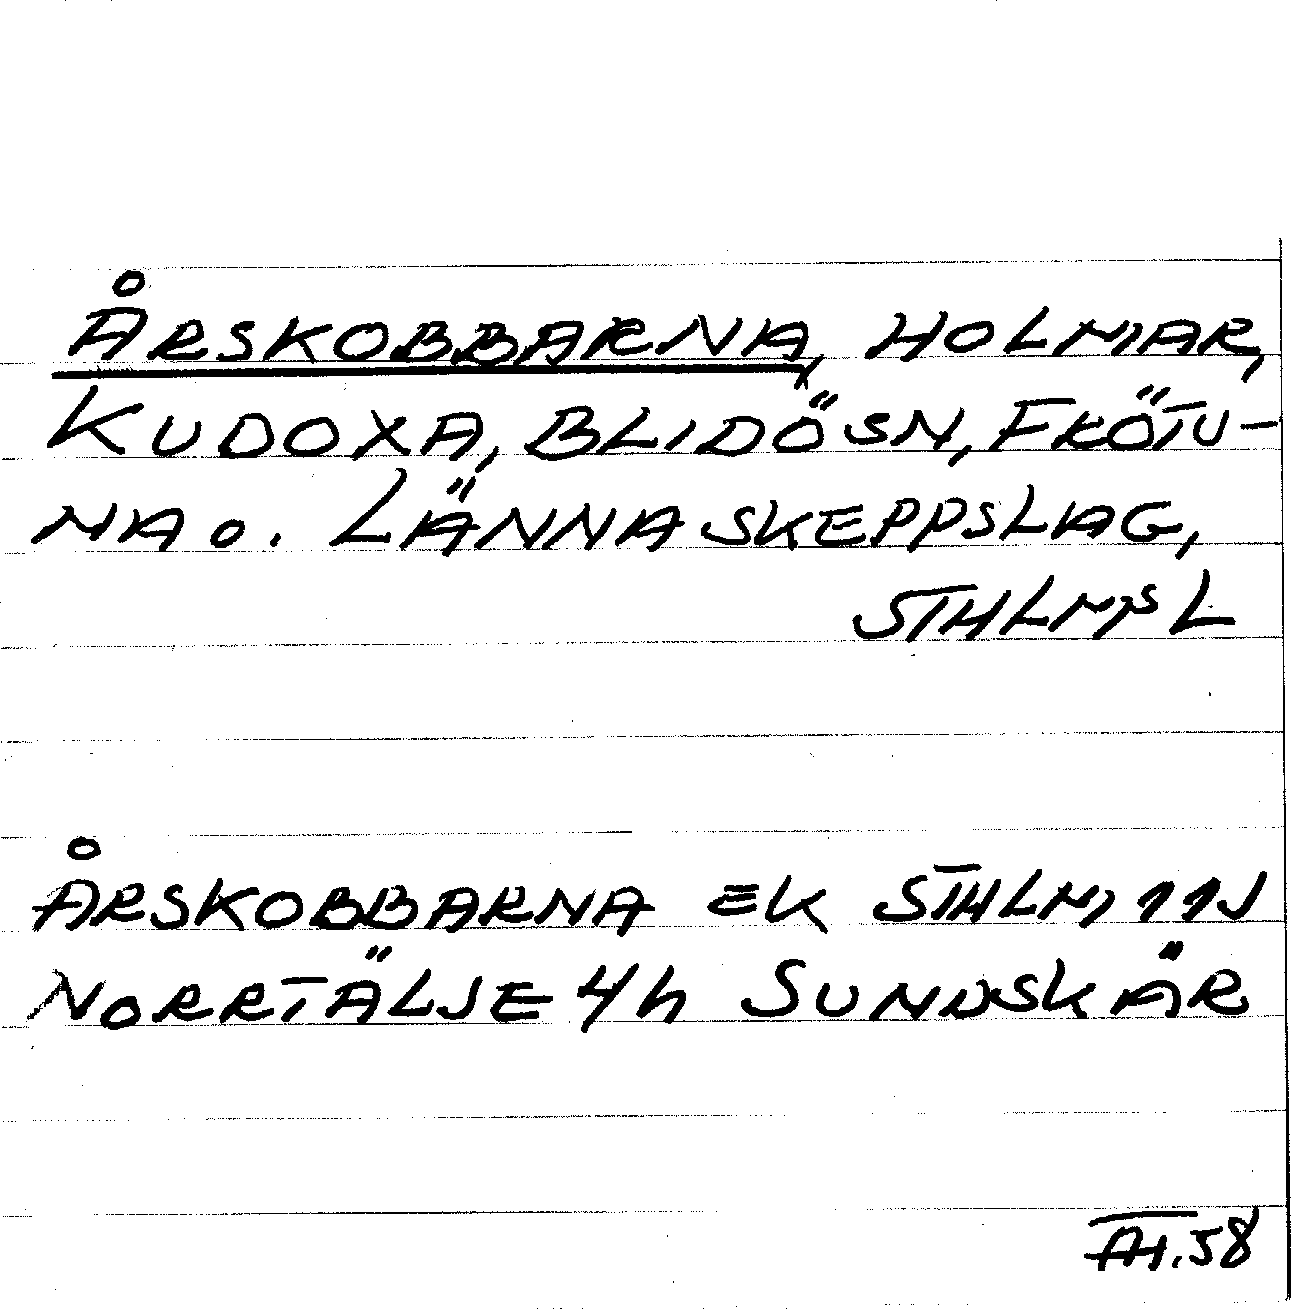 ÅRSKOBBARNA, HOLMAR,
KUDOXA, BLIDÖ SN, FRÖTU-
NA O. LÄNNA SKEPPSLAG,
STHLMS L
ÅRSKOBBARNA EK STHLM 11J
NORRTÄLJE 4h SUNDSKÄR